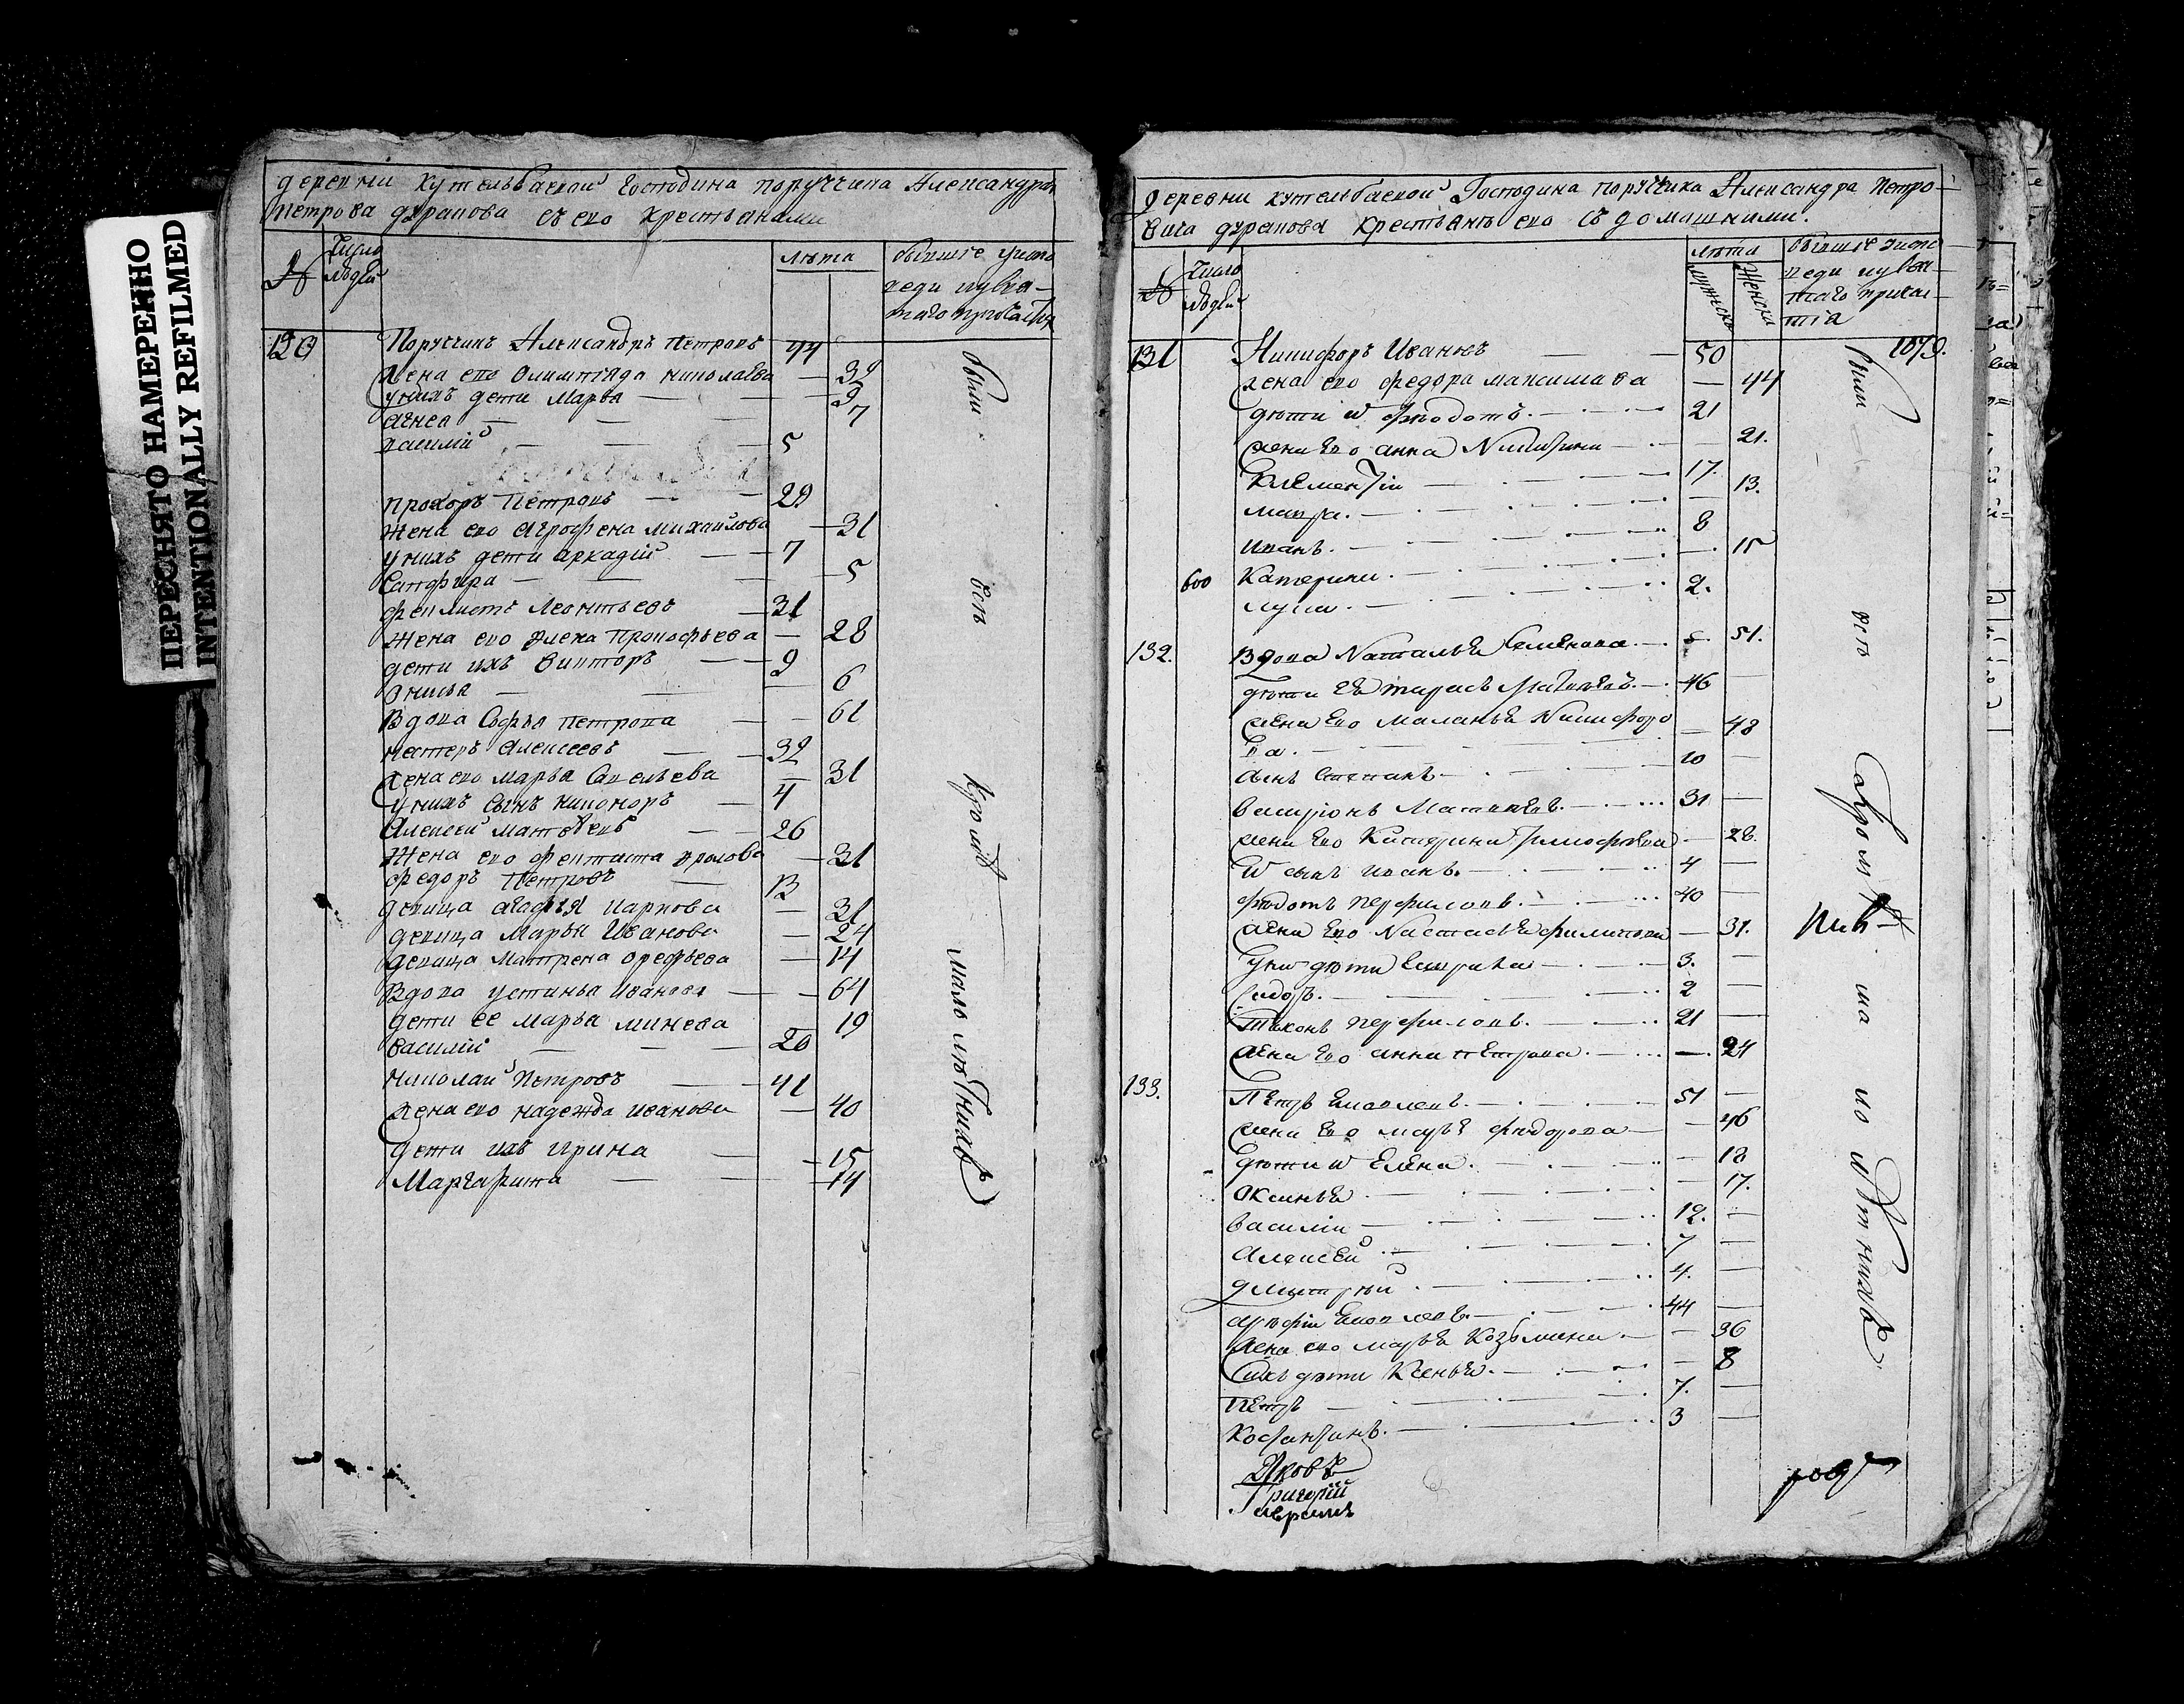 ПЕРЕСНЯТО НАМЕРЕННО
INTENTIONALLY REFILMED
деревни кутельбаевой Господина поручика Александра
Петрова дурасова съ ево крестьянами
№ Число людей
лѣта
бывшие
Поручикъ Александръ Петровъ 44
жена ево Олимпіяда николаева — 32
у нихъ дети Марья — 9
7
василий — 5
прохоръ Петровъ — 29
жена ево агрофена михаилова — 31
у нихъ дети аркадій — 7
Сапфира — 5
феклистъ Леонтьевъ — 31
жена ево елена Прокофьева — 28
дети ихъ викторъ — 9
6
Вдова Софья петрова — 61
нестеръ алексеевъ — 32
жена ево марья савельева — 31
у нихъ сынъ никоноръ — 4
Алексей матвеевъ — 26
жена ево фектиста фролова — 31
федоръ Петровъ — 13
девица агафья карпова — 31
девица Марья Иванова — 24
девица Матрена орефьева — 14
Вдова устинья иванова — 64
дети ее марья минеева — 19
василий — 20
николай Петровъ — 41
жена ево надежда иванова — 40
дети ихъ ирина — 15
Маргарита — 14
были
всѣ
кроме
мало лѣтнихъ
деревни кутельбаевой Господина поручика Александра Петро-
вича дурасова крестьянъ ево съ домашними.
№ Число людей
лѣта
мужска
женска
бывшие
1079.
131 Никифоръ Ивановъ — 50
жена ево федора максимава — 44
дѣти ѿ федотъ — 21
жена ево анна — 21.
Клементіи — 17.
мавра — 13.
иванъ — 8
600 Катерина — 15
лука — 2.
132. Вдова Наталья Семенова — 51.
дѣти ея тарасъ Матвеевъ — 46
жена ево маланья Никифоро
ва — 48
сынъ степанъ — 10
Матвеевъ — 31
жена ево Катерина Тимофеева — 28.
ѿ сынъ иванъ — 4
федотъ перфиловъ — 40
жена ево Настасья филипова — 31.
дѣти — 3.
сидоръ — 2
тихонъ перфиловъ — 21
жена ево анна петрова — 24
133. Петръ — 51
жена ево марья федорова — 46
дѣти ѿ Елена — 18
оксинья — 17.
василіи — 12.
алексей — 7
дмитрей — 4.
44
жена ево марья Козьмина — 36
дѣти Ксенья — 8
петръ — 7.
Костантинъ — 3
Яковъ
Григорій
аврамъ
были
всѣ
Кромѣ
ма
ло
лѣтнихъ